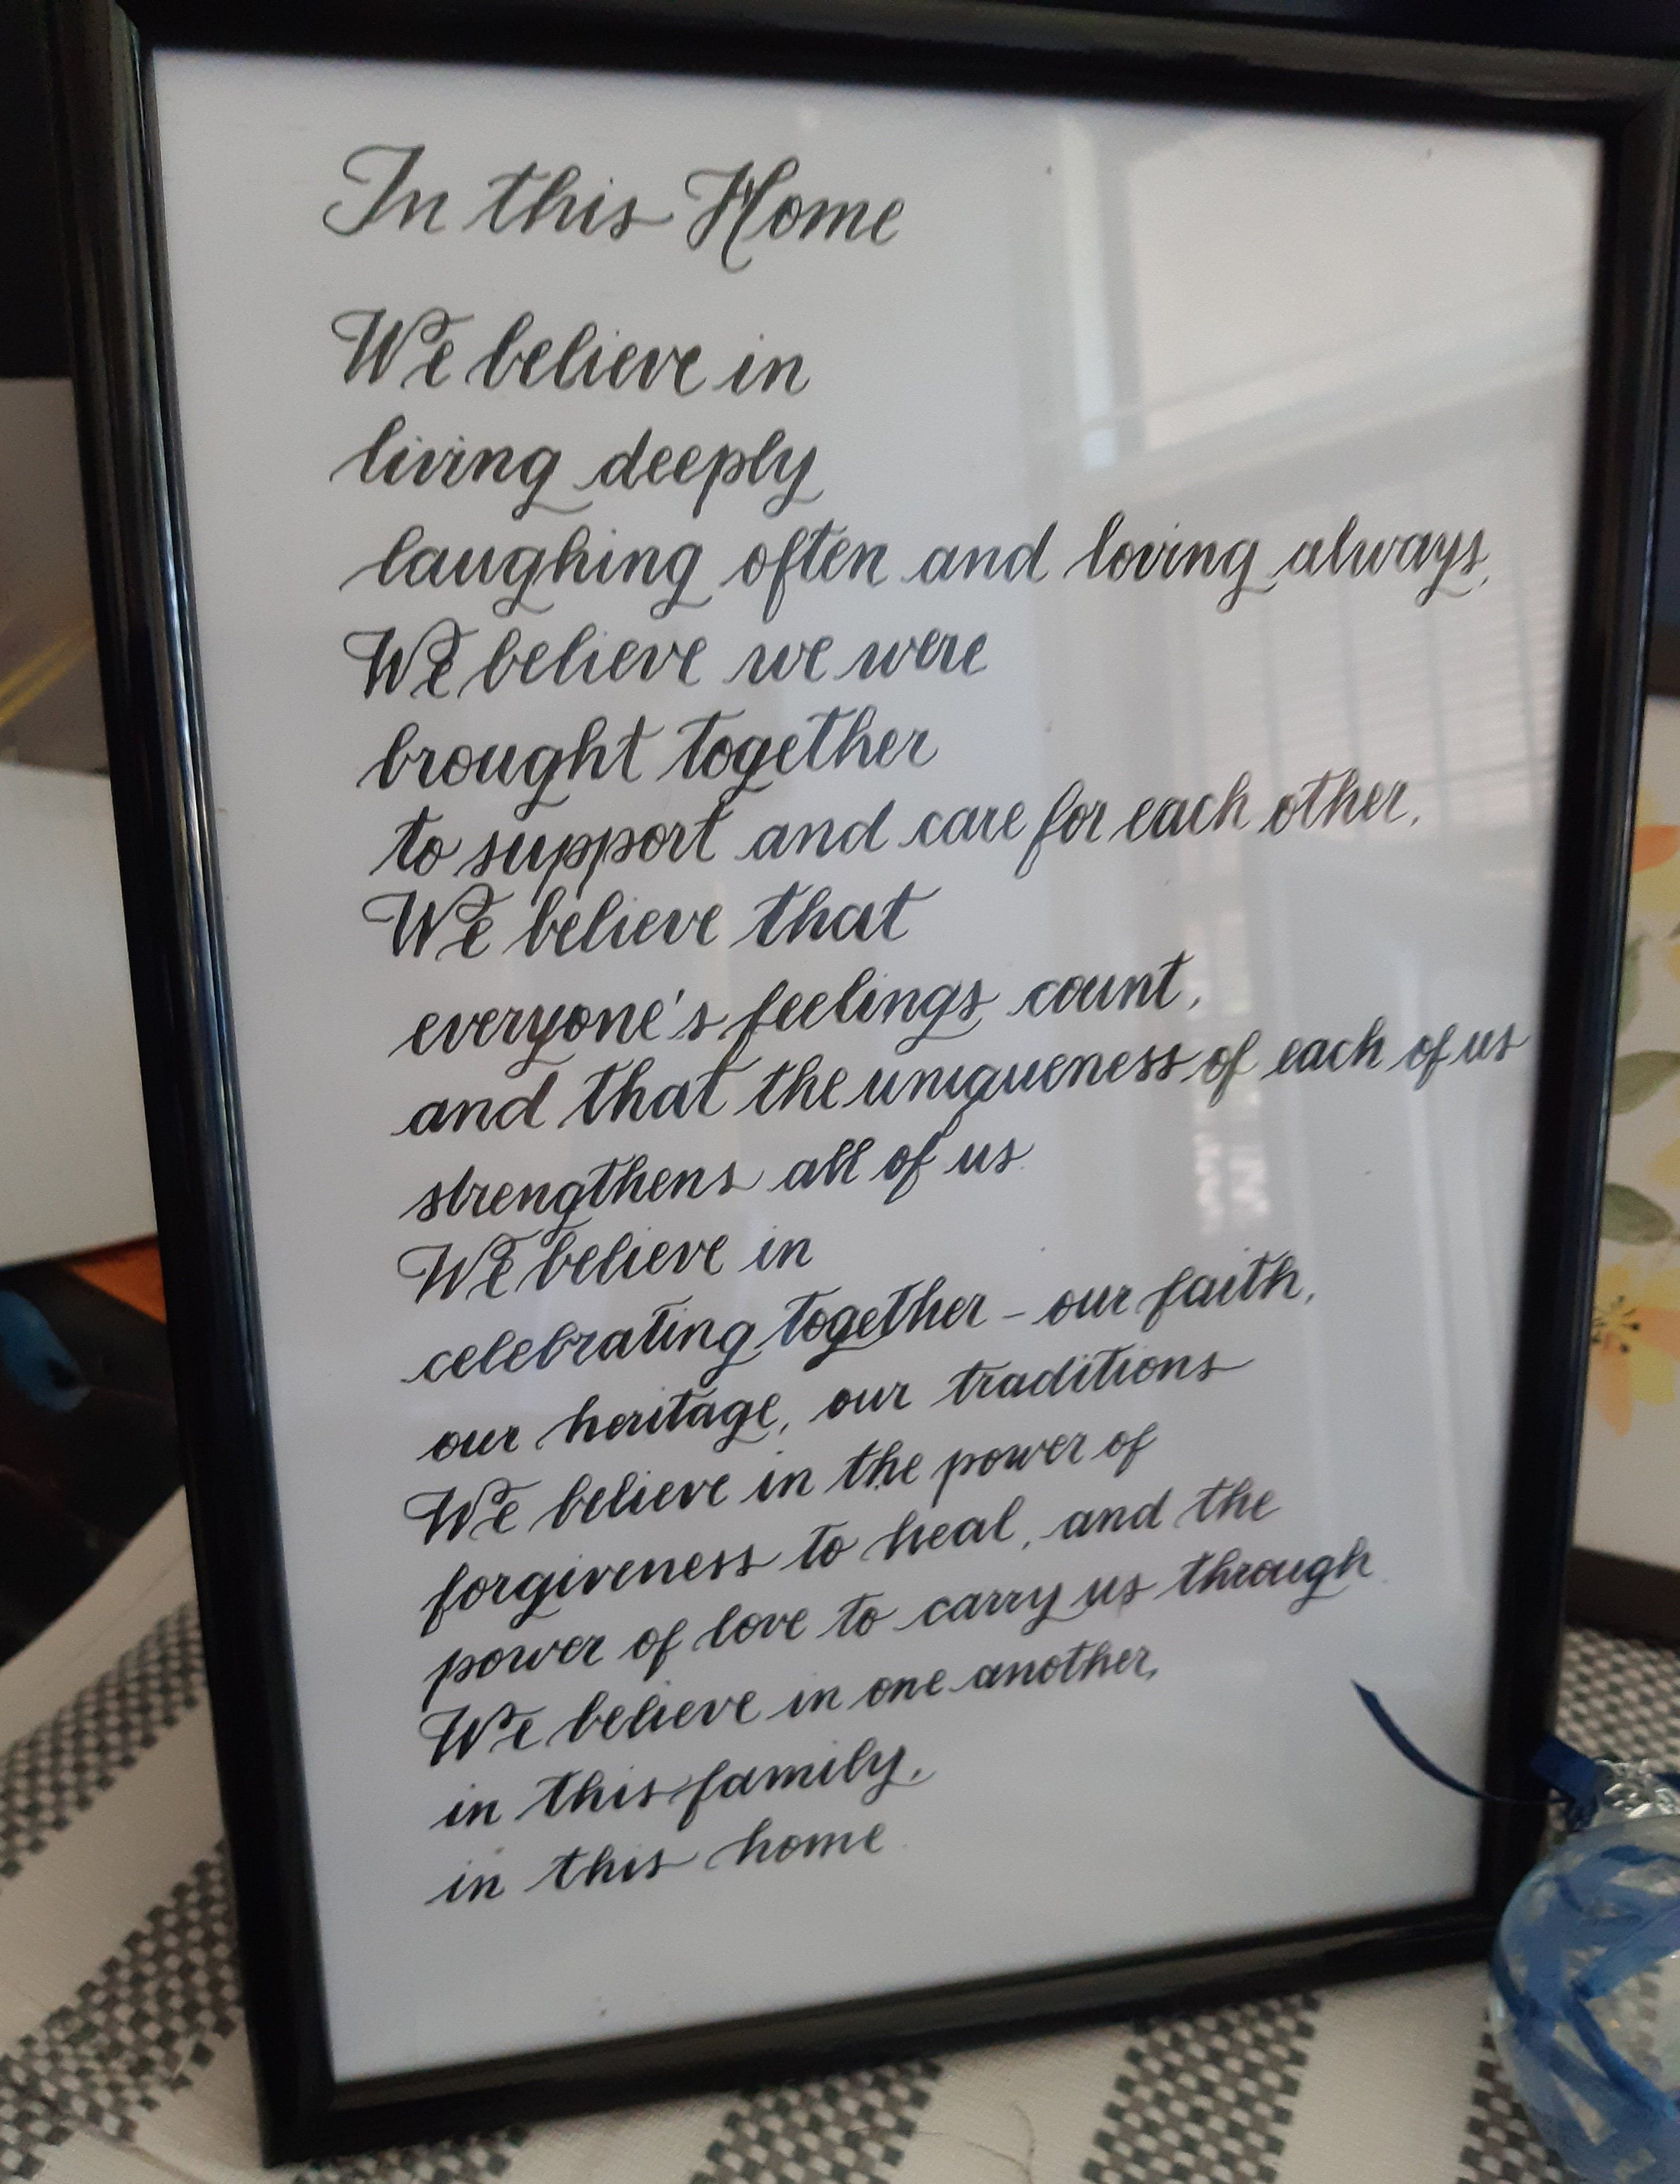 In this Home
We believe in
living deeply
laughing often and loving always,
We believe we were
brought together
to support and care for each other,
We believe that
everyone's feelings count,
and that the uniqueness of each of us
strengthens all of us.
We believe in
celebrating together - our faith,
our heritage, our traditions
We believe in the power of
forgiveness to heal, and the
power of love to carry us through.
We believe in one another,
in this family,
in this home.